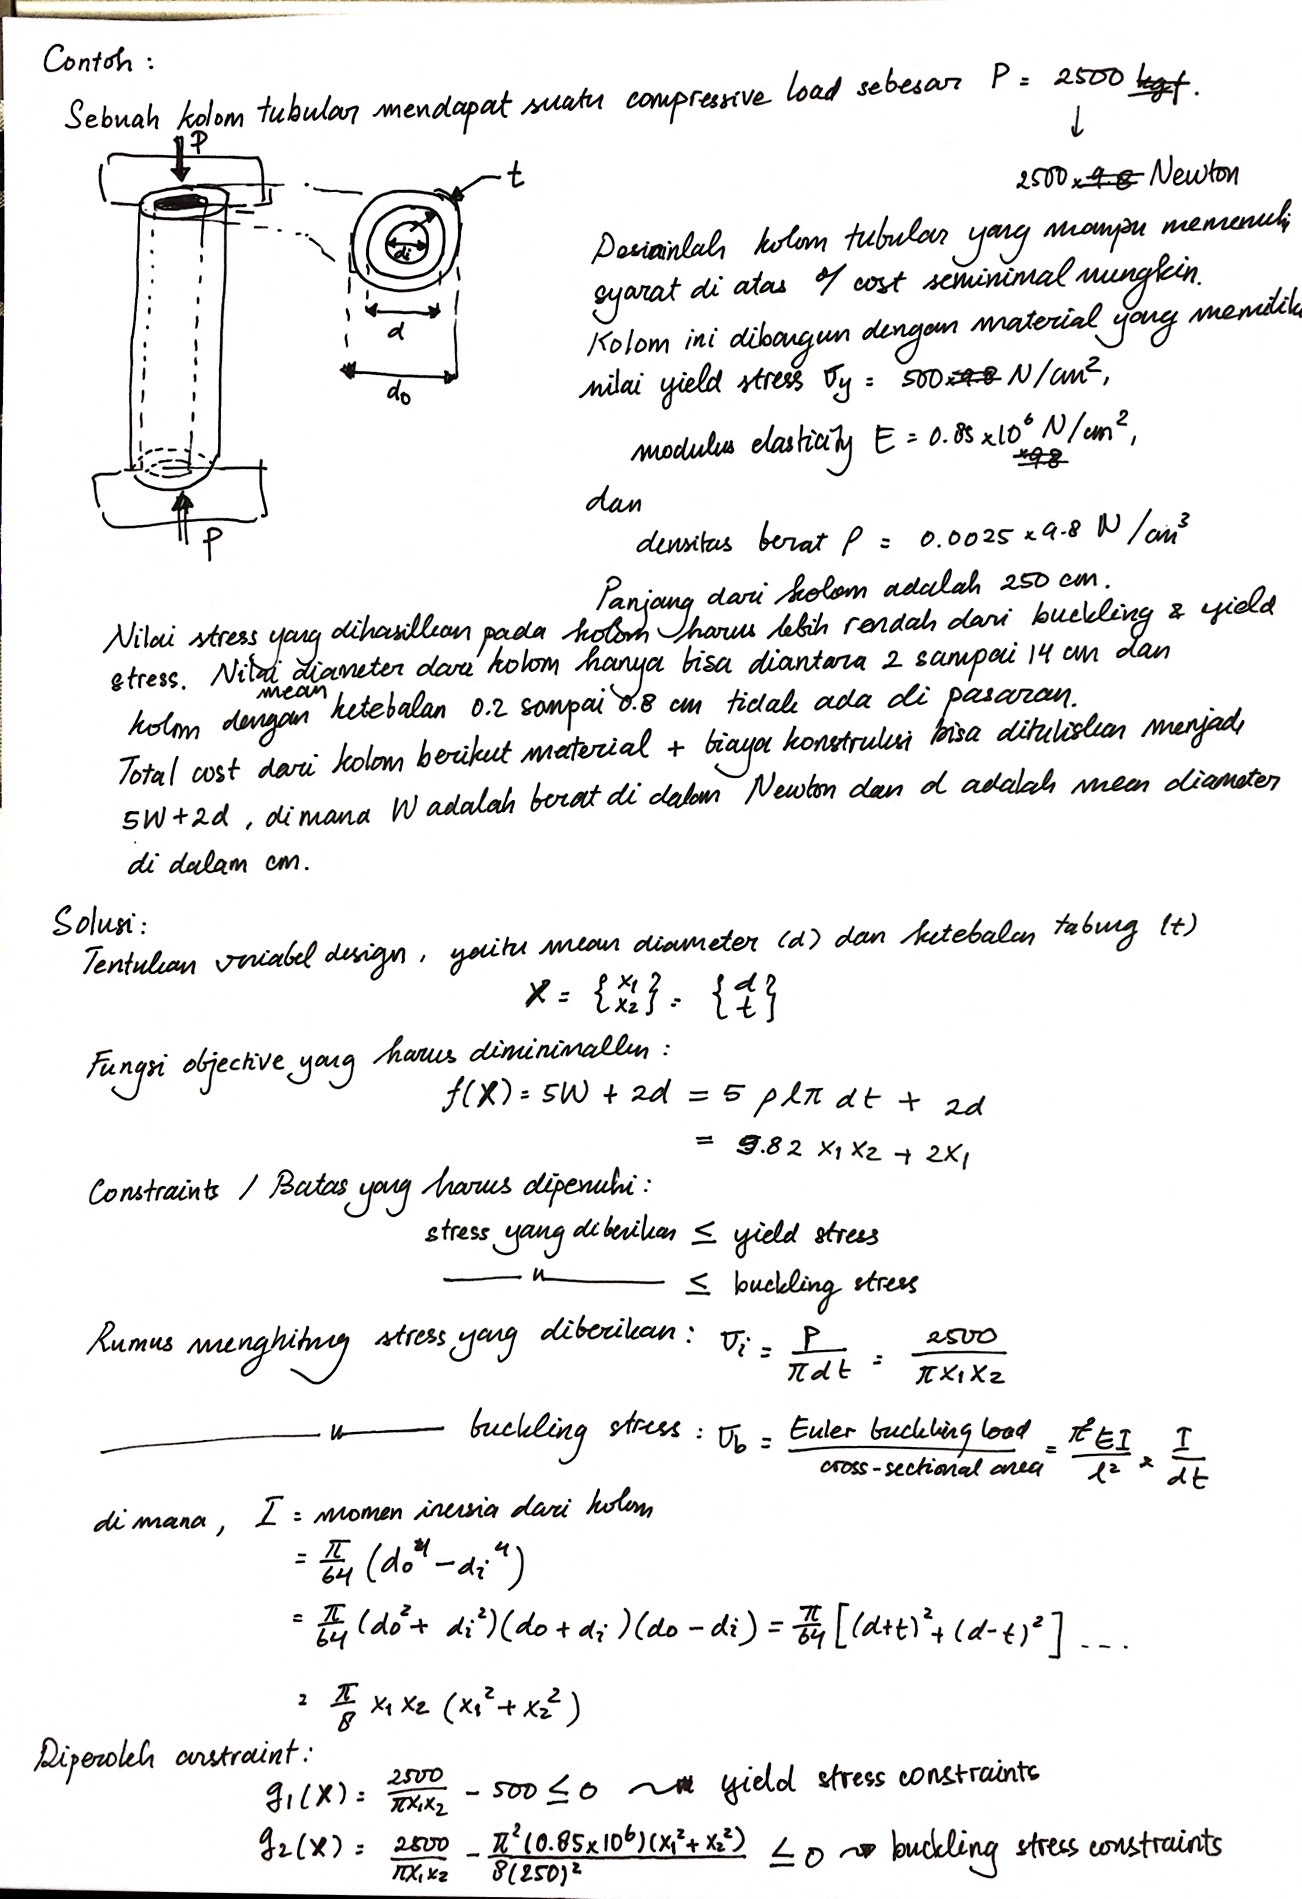 Contoh :
Sebuah kolom tubular mendapat suatu compressive load sebesar P = 2500 kgf.
↓
2500 x 9.8 Newton
P
t
di
d
do
P
Desainlah kolom tubular yang mampu memenuhi
syarat di atas cost seminimal mungkin.
Kolom ini dibangun dengan material yang memiliki
nilai yield stress σy = 500 x 9.8 N/cm²,
modulus elasticity E = 0.85 x 10⁶ N/cm²,
x 9.8
dan
densitas berat ρ = 0.0025 x 9.8 N/cm³
Panjang dari kolom adalah 250 cm.
Nilai stress yang dihasilkan pada kolom harus lebih rendah dari buckling & yield
stress. Nilai diameter dari kolom hanya bisa diantara 2 sampai 14 cm dan
mean
kolom dengan ketebalan 0.2 sampai 0.8 cm tidak ada di pasaran.
Total cost dari kolom berikut material + biaya konstruksi bisa dituliskan menjadi
5W+2d, di mana W adalah berat di dalam Newton dan d adalah mean diameter
di dalam cm.
Solusi:
Tentukan variabel design, yaitu mean diameter (d) dan ketebalan tabung (t)
X = {x1 x2} = {d t}
Fungsi objective yang harus diminimalkan :
f(X) = 5W + 2d = 5 ρlπ dt + 2d
= 9.82 x1 x2 + 2x1
Constraints / Batas yang harus dipenuhi :
stress yang diberikan ≤ yield stress
—— " —— ≤ buckling stress
Rumus menghitung stress yang diberikan : σi = P/πdt = 2500/πx1x2
—— " —— buckling stress : σb = Euler buckling load/cross-sectional area = π²EI/l² x I/dt
di mana, I = momen inersia dari kolom
= π/64 (do⁴ - di⁴)
= π/64 (do² + di²)(do + di)(do - di) = π/64 [(d+t)² + (d-t)²] ....
= π/8 x1 x2 (x1² + x2²)
Diperoleh constraint :
g1(X) = 2500/πx1x2 - 500 ≤ 0 ~ yield stress constraints
g2(X) = 2500/πx1x2 - π²(0.85x10⁶)(x1²+x2²)/8(250)² ≤ 0 ~ buckling stress constraints